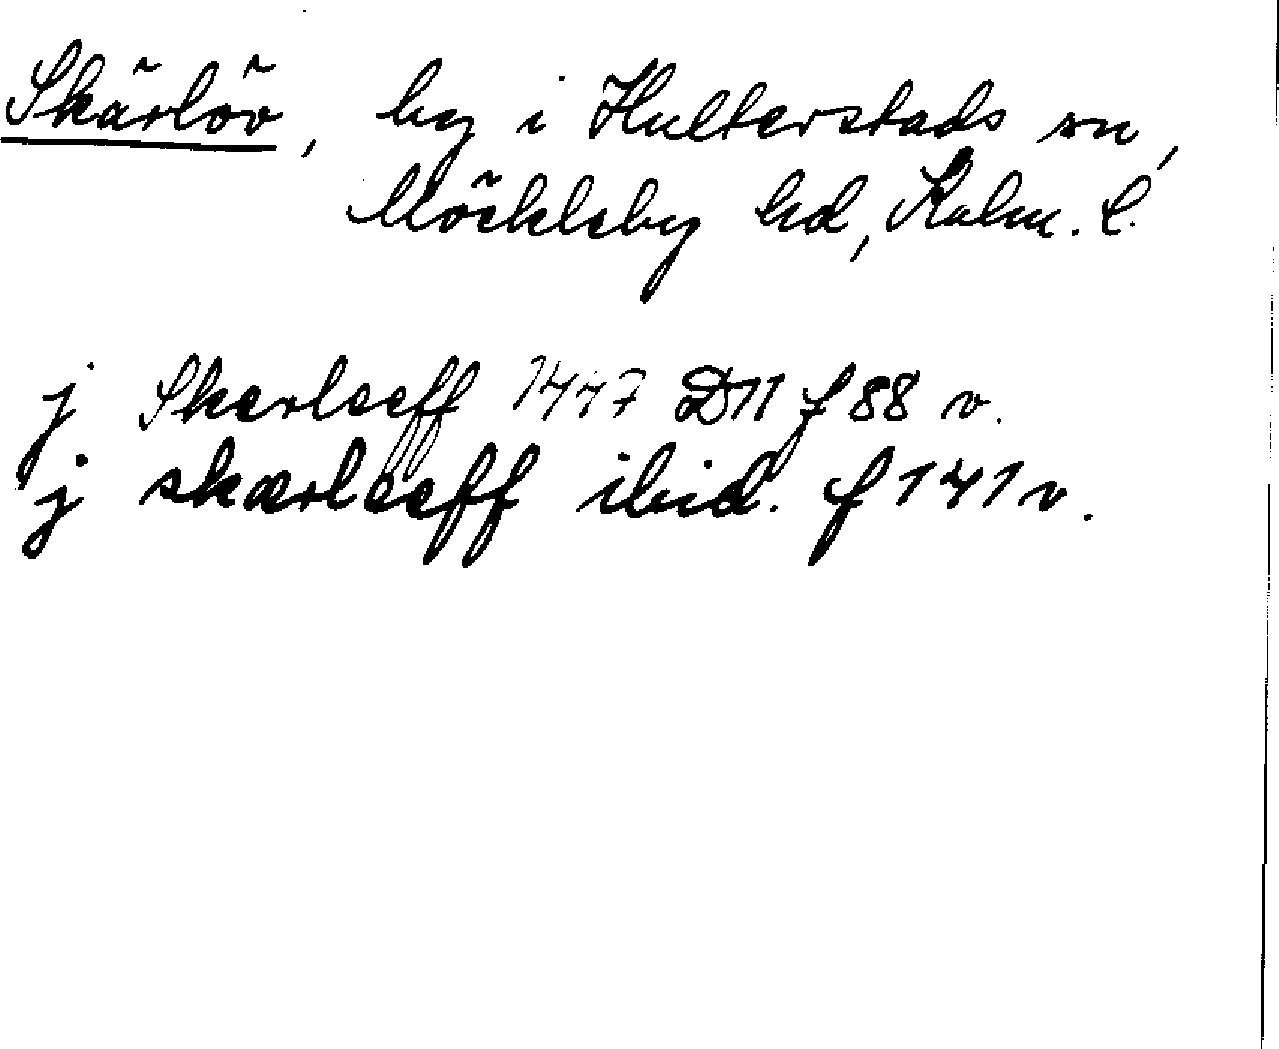 Skärlöv, by i Hulterstads sn,
Möckleby hd, Kalm. l.
j Skerleeff 1447 D11 f 88 v.
j skærleeff ibid. f 141 v.